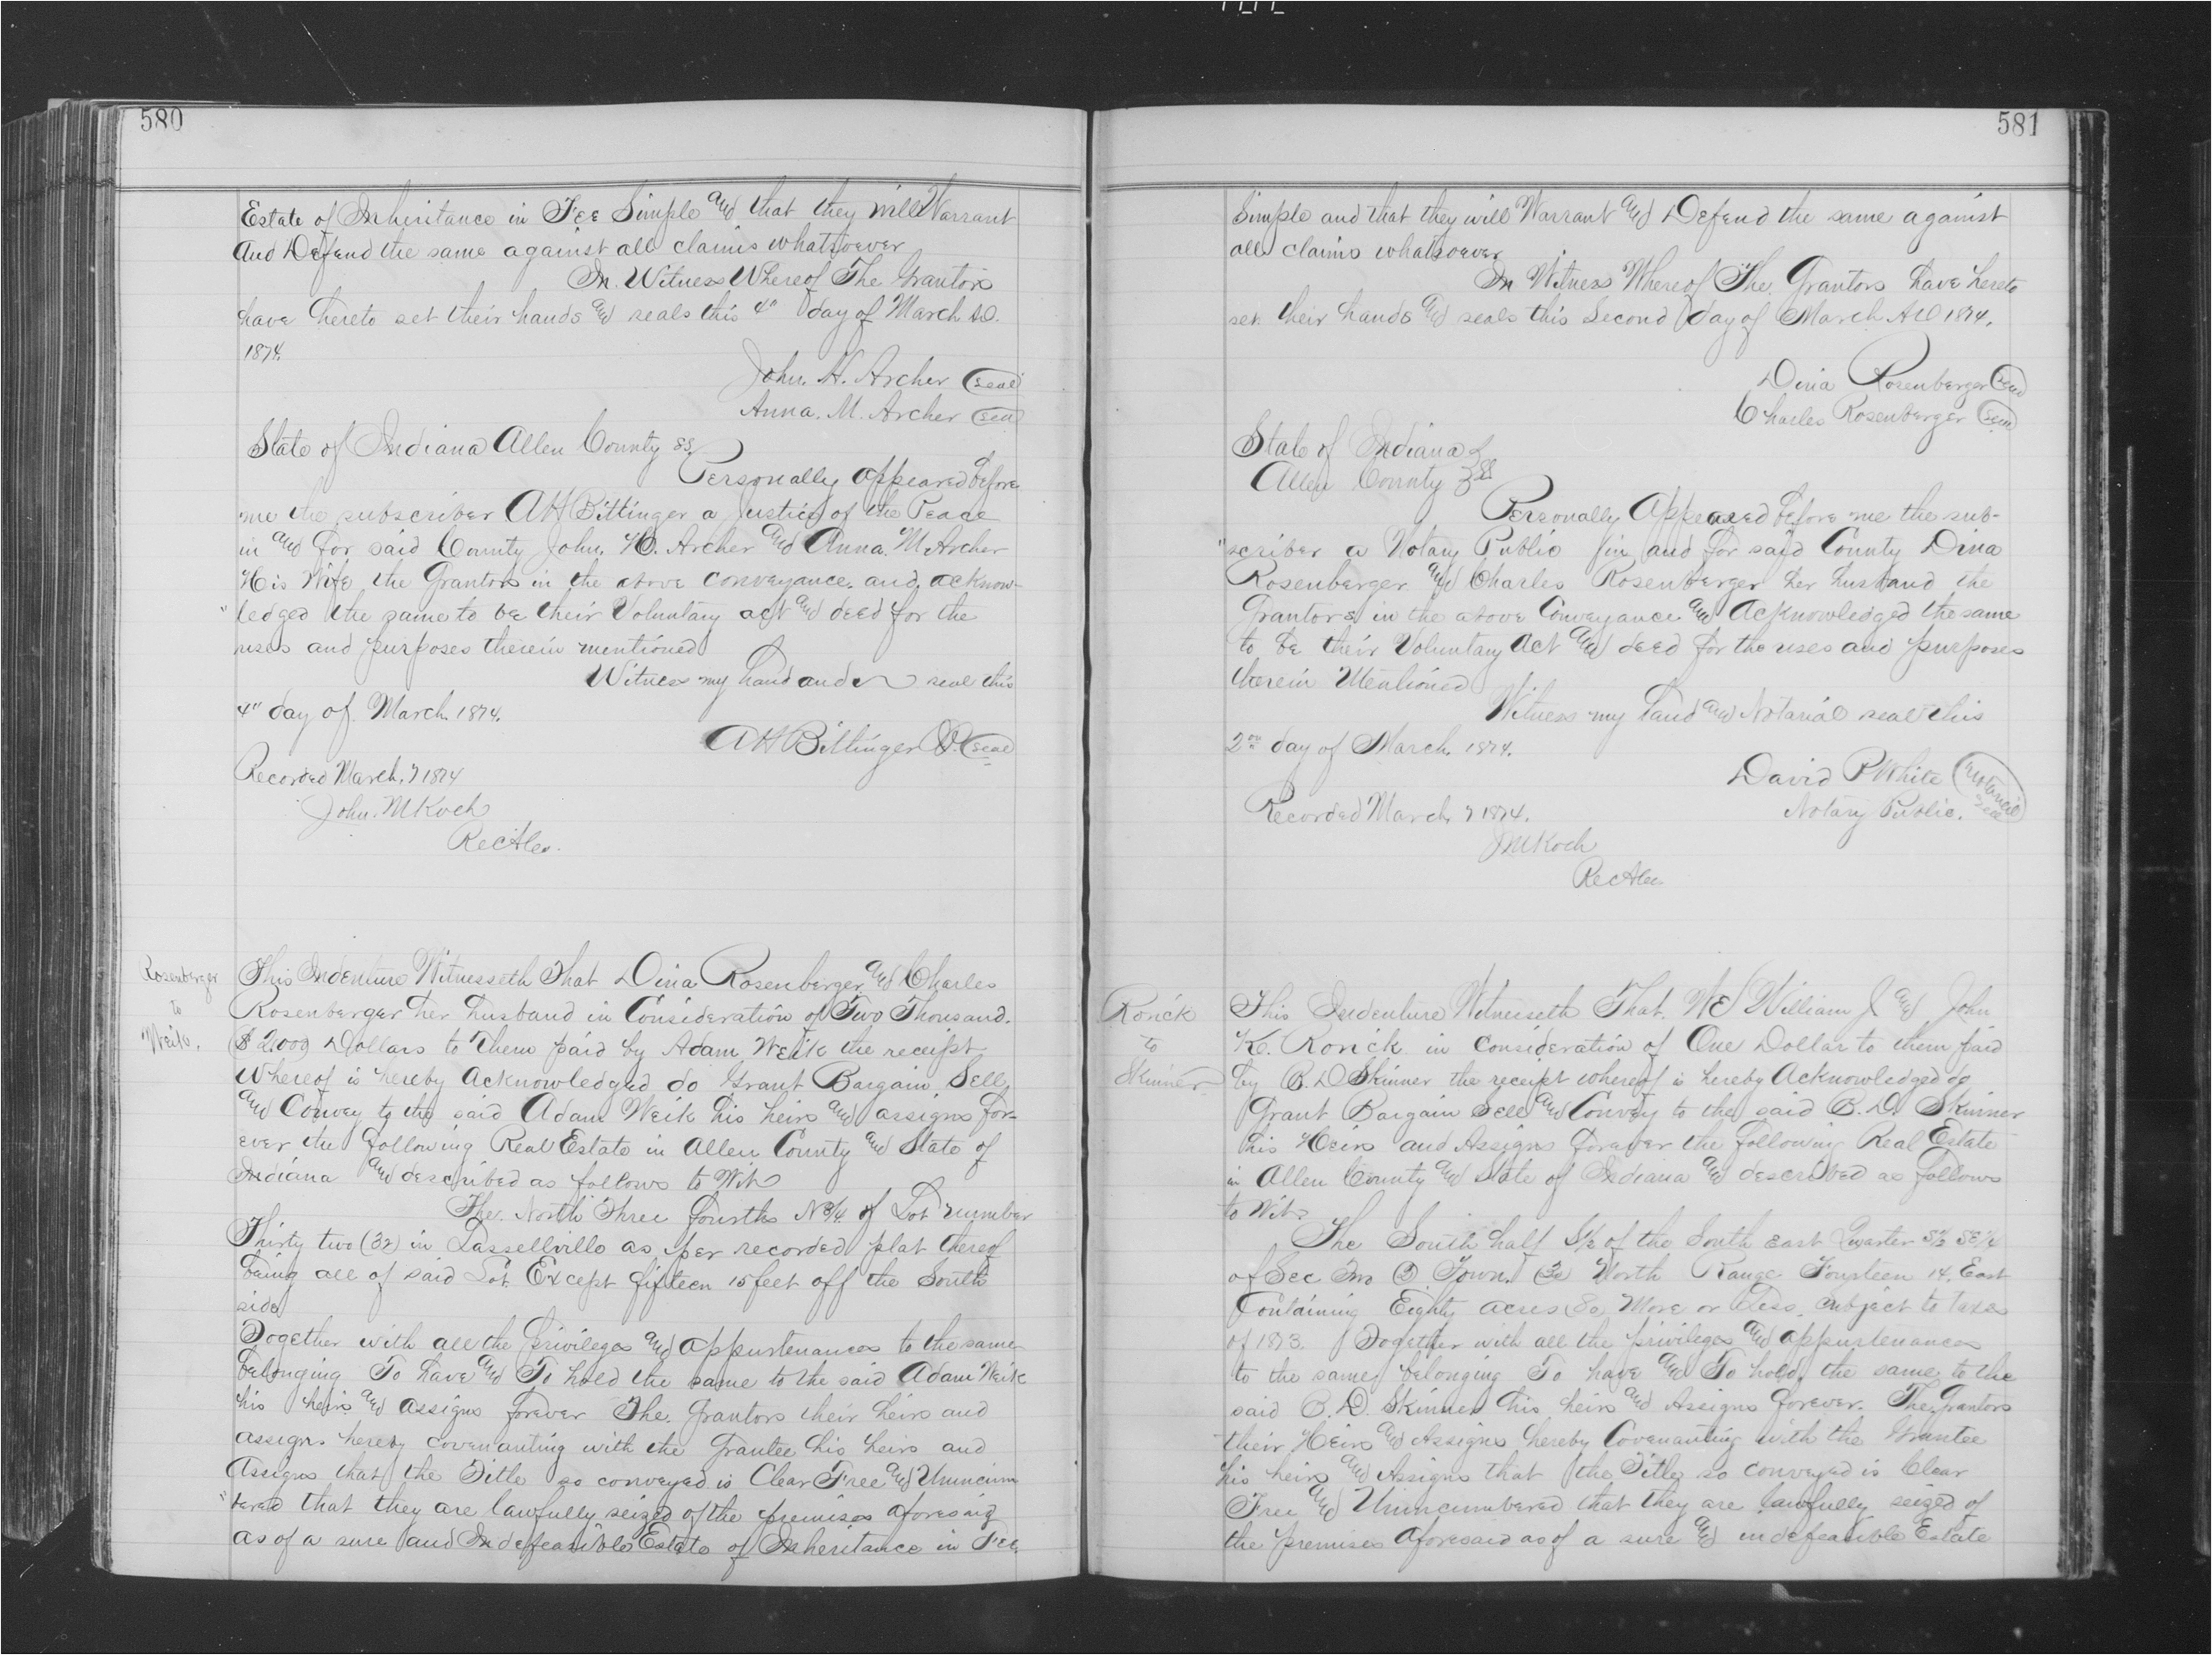 580
Estate of Inheritance in Fee Simple and that they will Warrant
And Defend the same against all claims whatsoever
In Witness Whereof The Grantors
have hereto set their hands and seals this 4" day of March AD.
1874.
John. H. Archer (seal)
Anna. M. Archer (seal)
State of Indiana Allen County ss
Personally Appeared before
me the subscriber AH Bittinger a Justice of the Peace
in and for said County John. H. Archer and Anna. M Archer
His Wife the Grantors in the above conveyance. and acknow-
"ledged the same to be their Voluntary act and deed for the
uses and purposes therein mentioned
Witness my hand and seal this
4" day of March 1874.
AH Bittinger (seal)
Recorded March. 7 1874
John. M Koch
Rosenberger
to
Weik.
This Indenture Witnesseth That Dina Rosenberger and Charles
Rosenberger her husband in Consideration of Two Thousand.
$2000 Dollars to them paid by Adam Weik the receipt
Whereof is hereby Acknowledged do Grant Bargain Sell
and Convey to the said Adam Weik his heirs and assigns for-
ever the following Real Estate in Allen County and State of
Indiana and described as follows to Wit
The North Three fourths N 3/4 of Lot number
Thirty two (32) in Lassellville as per recorded plat thereof
being all of said Lot Except fifteen 15 feet off the South
side
Together with all the privileges and appurtenances to the same
belonging To have and To hold the same to the said Adam Weik
his heirs and assigns forever The Grantors their heirs and
assigns hereby covenanting with the Grantee his heirs and
Assigns that the Title so conveyed is Clear Free and Unincum
"bered that they are lawfully seized of the premises aforesaid
as of a sure and Indefeasible Estate of Inheritance in Fee
581
Simple and that they will Warrant and Defend the same against
all claims whatsoever
In Witness Whereof The Grantors have hereto
set their hands and seals this Second day of March AD 1874.
Dina Rosenberger (seal)
Charles Rosenberger (seal)
State of Indiana
Allen County ss
Personally Appeared before me the sub-
"scriber a Notary Public in and for said County Dina
Rosenberger and Charles Rosenberger her husband the
Grantors in the above Conveyance and Acknowledged the same
to be their Voluntary Act and deed for the uses and purposes
therein Mentioned
Witness my hand and Notarial seal this
2nd day of March 1874.
David P White (Notarial Seal)
Notary Public.
Recorded March 7 1874.
JM Koch
Ronick
to
Skinner
This Indenture Witnesseth That. We William J and John
K. Ronick in consideration of One Dollar to them paid
by B. D Skinner the receipt whereof is hereby Acknowledged do
Grant Bargain Sell and Convey to the said B. D. Skinner
his Heirs and Assigns forever the following Real Estate
in Allen County and State of Indiana and described as follows
to Wit
The South half S 1/2 of the South East Quarter S 1/2 SE 1/4
of Sec Town. North Range Fourteen 14. East
Containing Eighty acres 80 More or Less subject to taxes
of 1873. Together with all the privileges and appurtenances
to the same belonging To have and To hold the same to the
said B. D. Skinner his heirs and Assigns forever. The Grantors
their Heirs and Assigns hereby Covenanting with the Grantee
his heirs and Assigns that the Title so conveyed is Clear
Free and Unincumbered that they are lawfully seized of
the premises Aforesaid as of a sure and indefeasible Estate